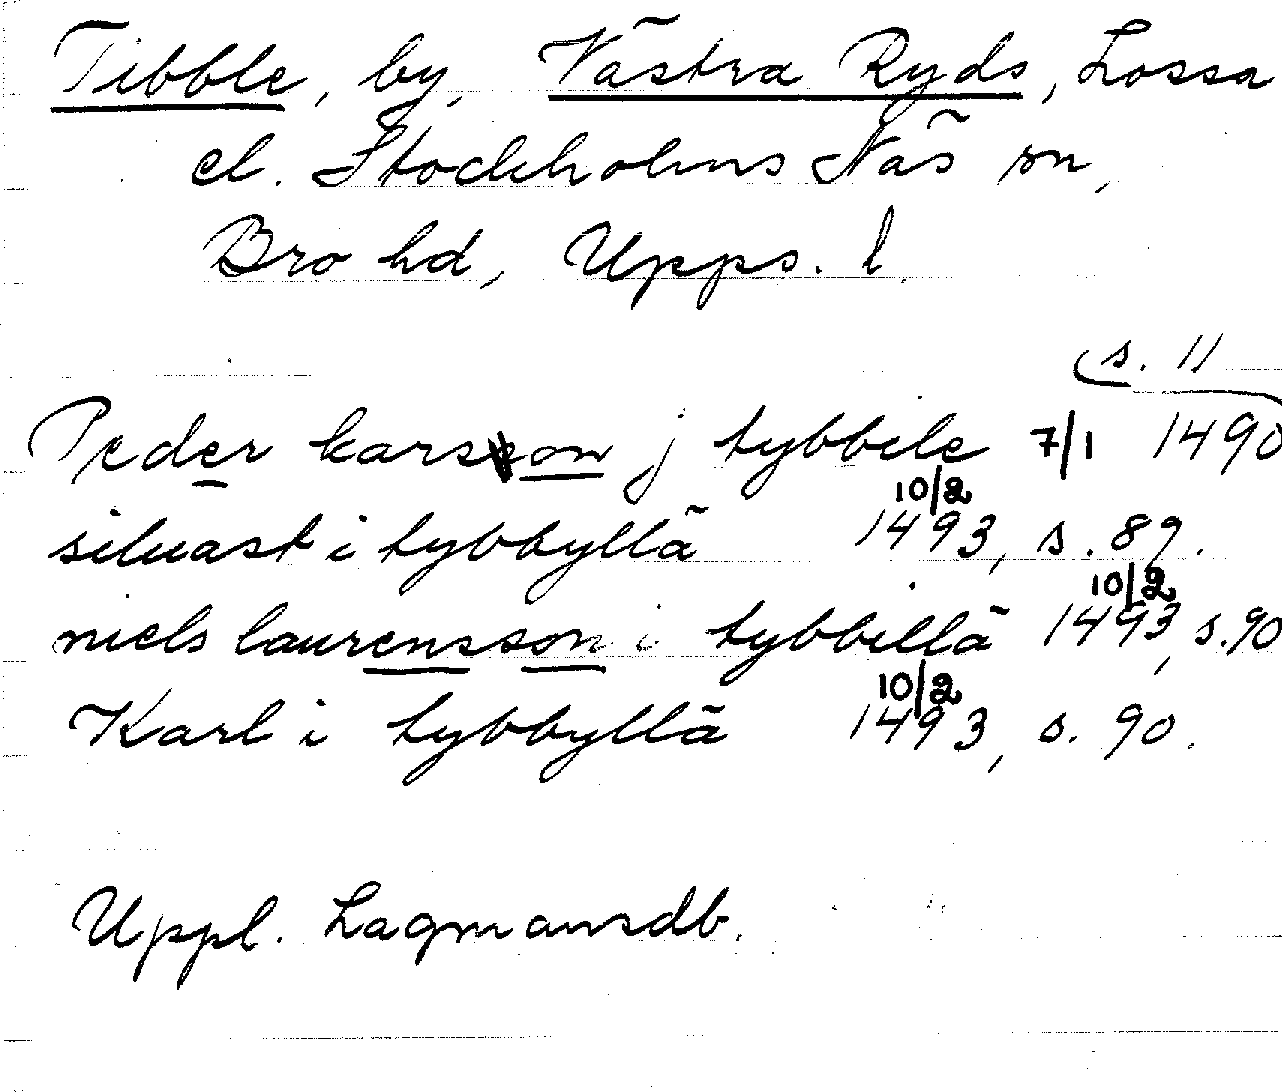 Tibble, by, Västra Ryds, Lossa
el. Stockholms Näs sn,
Bro hd, Upps. l.
s. 11
Peder karsson j tybbele 7/1 1490
siluast i tybbyllä 10/2 1493, s. 89.
niels laurensson i tybbillä 10/2 1493, s. 90
Karl i tybbyllä 10/2 1493, s. 90.
Uppl. Lagmansdb.